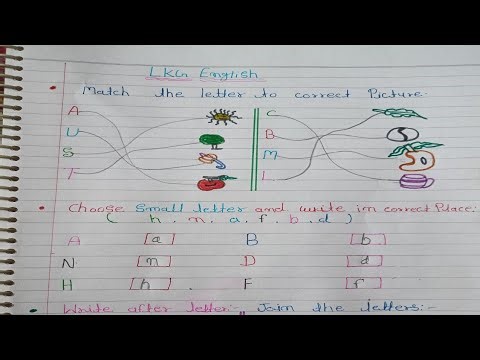 LKG English
Match the letter to correct Picture.
A C
U B
S M
T L
Choose Small letter and write in correct Place:
( h, n, a, f, b, d )
A [a] B [b]
N [n] D [d]
H [h] F [f]
Write after letter:- Join the letters:-